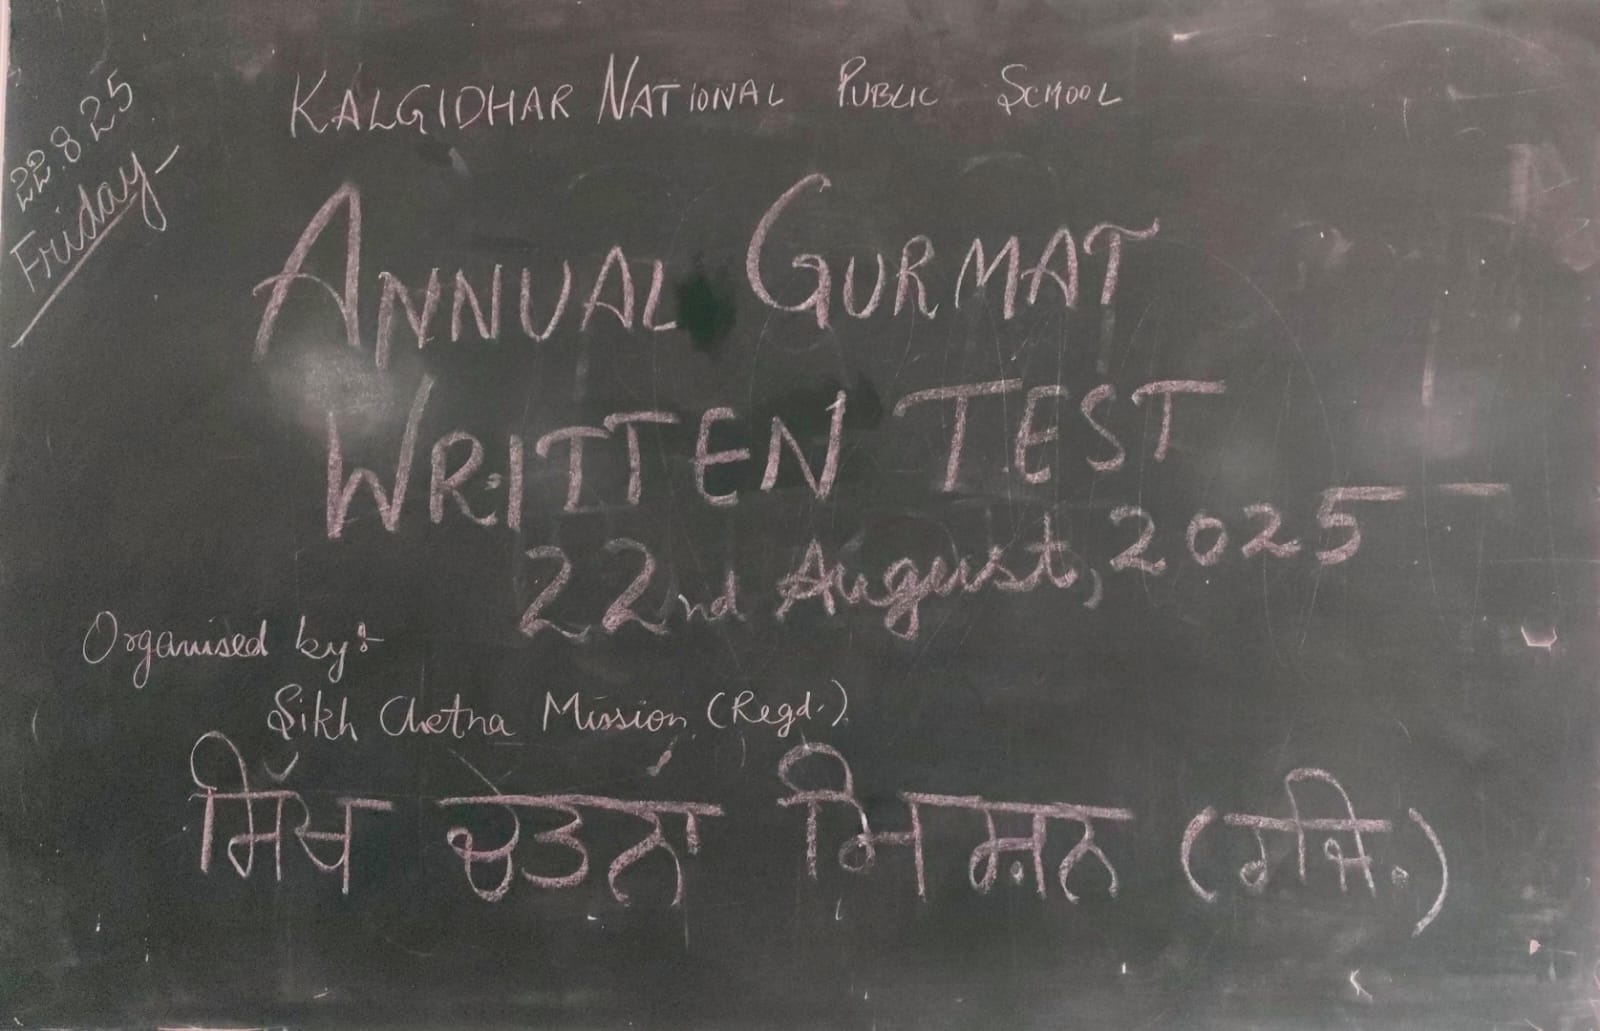 22.8.25
Friday
KALGIDHAR NATIONAL PUBLIC SCHOOL
ANNUAL GURMAT
WRITTEN TEST
22nd August, 2025
Organised by:-
Sikh Chetna Mission (Regd.)
ਸਿੱਖ ਚੇਤਨਾਂ ਮਿਸ਼ਨ (ਰਜਿ.)